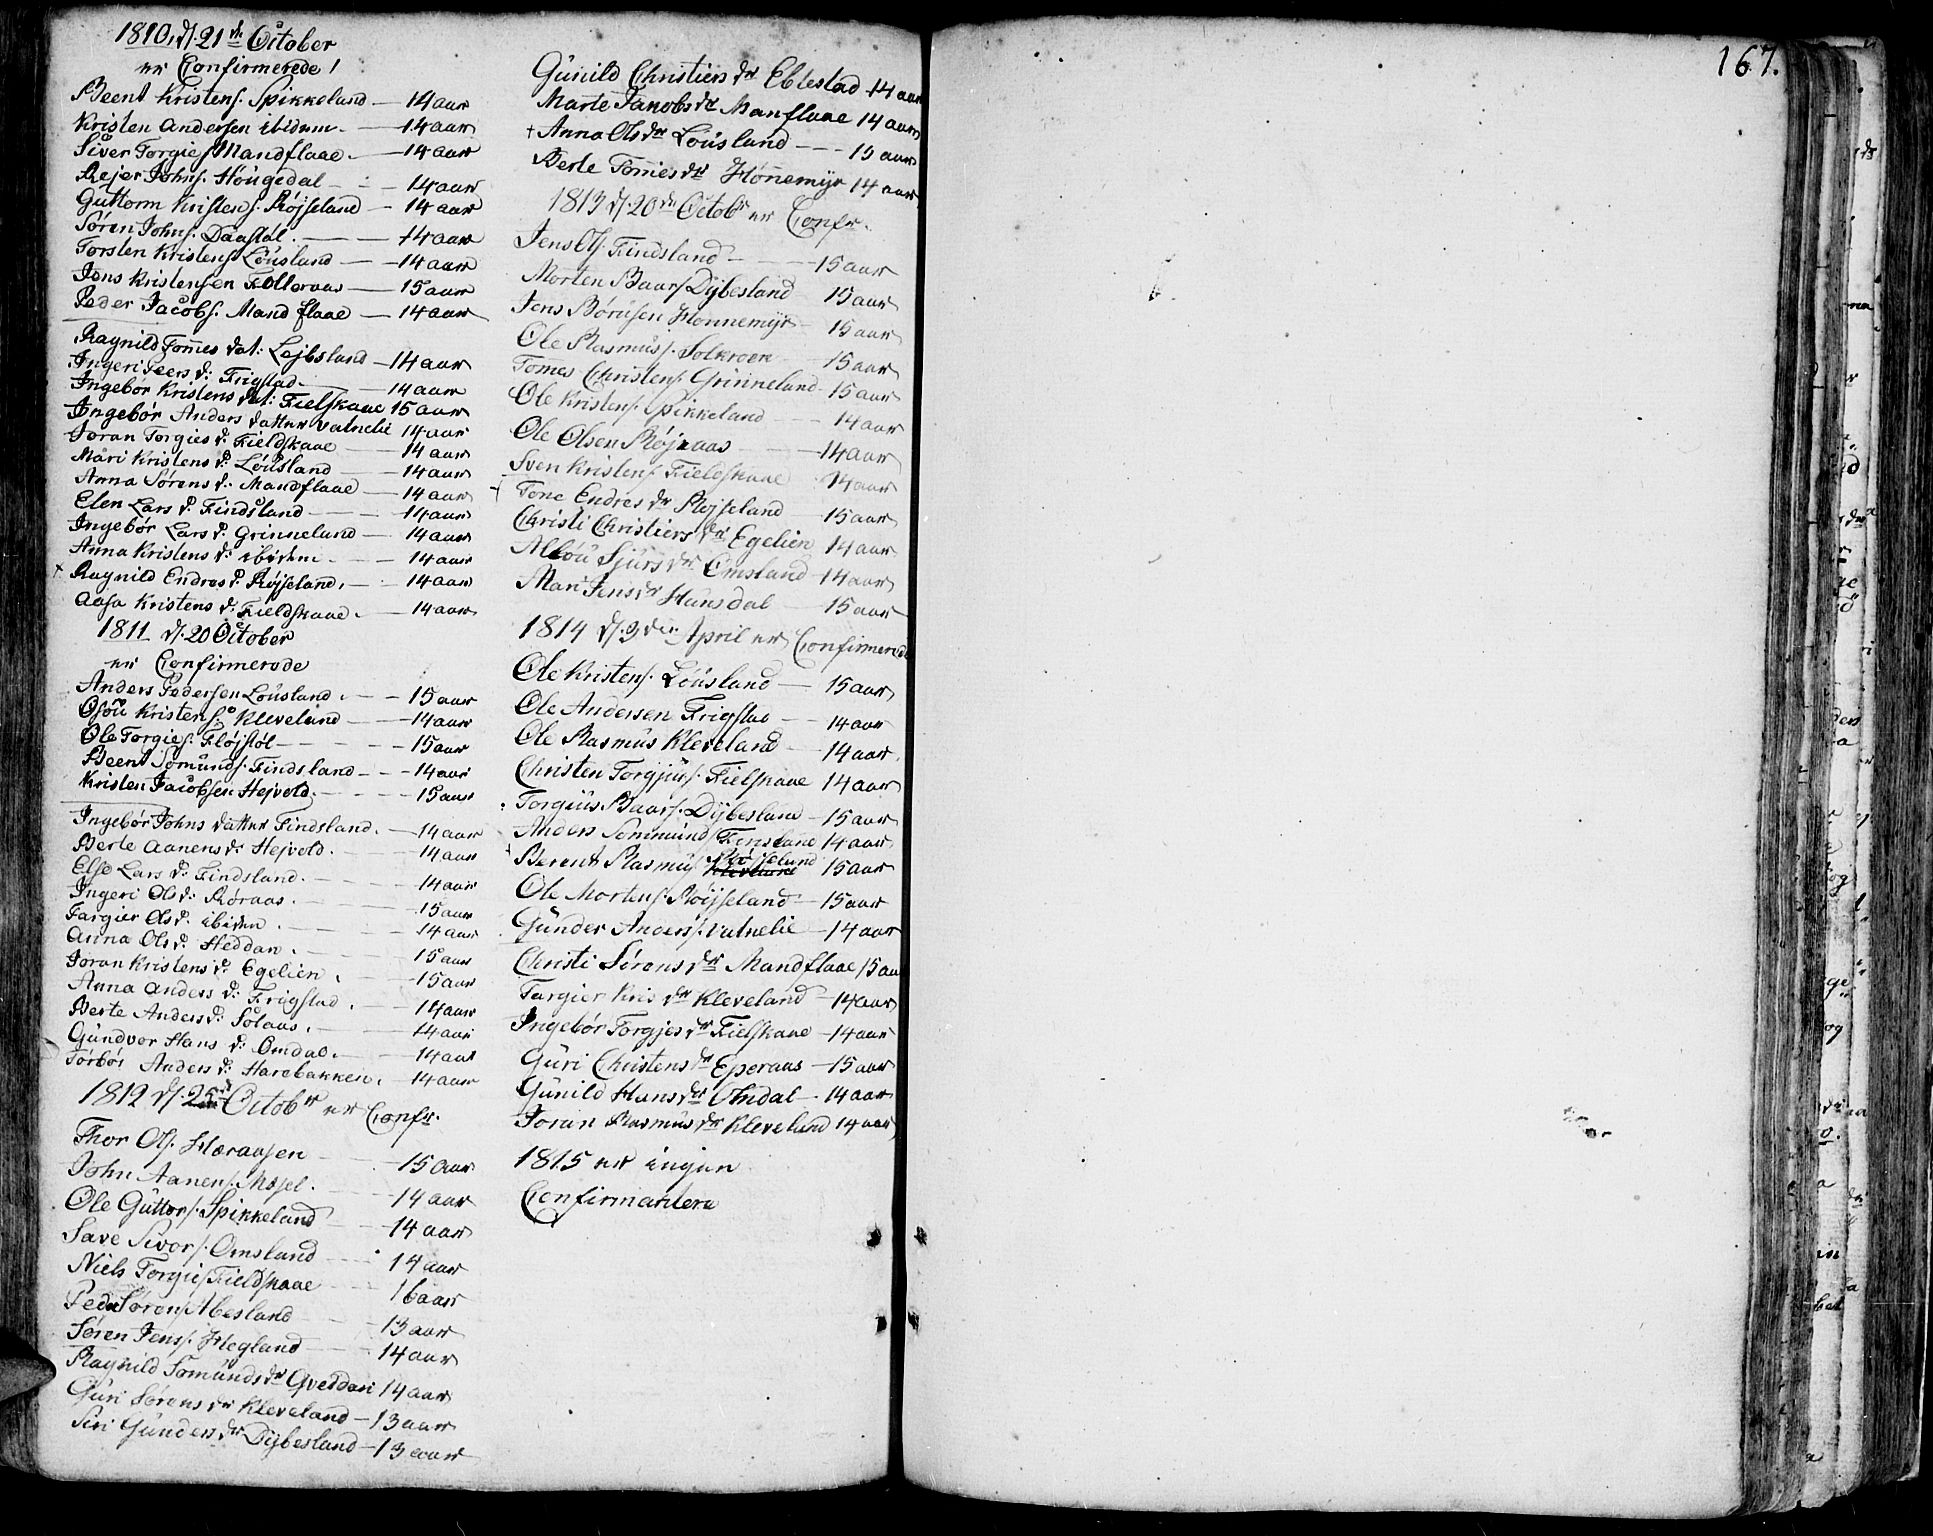 1810, d. 21de October
er Confirmerede /
Beent Kristens. Spikkeland — 14 aar
Kristen Andersen ibidem — 14 aar
Siver Torgies. Mandflaae — 14 aar
Rejer Johns. Hougedal — 14 aar
Guttorm Kristens. Røjseland — 14 aar
Søren Johns. Daastøl — 14 aar
Torsten Kristens. Lousland — 14 aar
Jens Kristensen Folleraas — 15 aar
Peder Jacobs. Mandflaae — 14 aar
Ragnild Tomes dat: Lejbsland — 14 aar
Ingeri Seers d: Frigstad — 14 aar
Ingebor Kristens dat: Fielskaae 15 aar
Ingebor Anders datter Valnelie 14 aar
Joran Torgies d: Fieldskaae — 14 aar
Mari Kristens d: Lousland — 14 aar
Anna Sørens d: Mandflaae — 14 aar
Elen Lars d: Findsland — 14 aar
Ingebør Lars d: Grinneland — 14 aar
Anna Kristens d: ibidem — 14 aar
+ Ragnild Endres d: Røjseland. — 14 aar
Aasa Kristens d: Fieldskaae. — 14 aar
1811 d. 20 October
er Confirmerede
Anders Pedersen Lousland. — 15 aar
Osou Kristens. Kleveland — 14 aar
Ole Torgies. Fløjstøl — 15 aar
Beent Somunds. Findsland — 14 aar
Kristen Jacobsen Hejvold. — 15 aar
Ingebør Johns datter Findsland. — 14 aar
Berte Aanens d: Hejvold. — 14 aar
Else Lars d: Findsland. — 14 aar
Ingeri Ols d: Røraas. — 15 aar
Targier Ols d. ibidem. — 14 aar
Anna Ols d: Heddan. — 15 aar
Joran Kristens d: Egelien. — 15 aar
Anna Anders d: Frigstad. — 14 aar
Berte Anders d: Solaas. — 14 aar
Gundvor Hans d: Omdal. — 14 aar
Torbør Anders d: Harebakken. — 14 aar
1812 d. 25de Octobr er Confr.
Thor Ols. Haraasen — 15 aar
John Aanens. Mosel. — 14 aar
Ole Guttors. Spikkeland — 14 aar
Save Sivers. Omsland — 14 aar
Niels Torgies. Fieldskaae — 16 aar
Peder Sørens. Abesland — 13 aar
Søren Jens. Hegland — 14 aar
Ragnild Somunds dr Qvesdari 14 aar
Guri Sørens dr Kleveland — 13 aar
Siri Gunders dr Dybesland — 13 aar
Gunild Christiers dr Eblestad 14 aar
Marte Jacobs dr Manflaae 14 aar
+ Anna Ols dr Lousland — 15 aar
Berte Tomes dr Hønnemyr 14 aar
1813 d. 20de Octobr er Confr.
Jens Ols. Findsland — 15 aar
Morten Baars. Dybesland 15 aar
Jens Børusen Honnemyr — 15 aar
Ole Rasmus. Solkroen 15 aar
Tomes Christens. Grinneland — 15 aar
Ole Kristens. Spikkeland — 14 aar
Ole Olsen Røjraas — 14 aar
Sven Kristens. Fieldskaae 14 aar
+ Tone Endres dr Røjseland — 15 aar
Christi Christiers dr Egelien 14 aar
Albou Sjurs dr Omsland — 14 aar
Mari Jens dr Hunsdal — 15 aar
1814 d. 3die April er Confirmerede
Ole Kristens. Lousland — 15 aar
Ole Andersen Frigstad — 14 aar
Ole Rasmus Kleveland — 14 aar
Christen Torgjus. Fielskaae 14 aar
Torgius Baars. Dybesland — 15 aar
Anders Sommund Finsland 14 aar
Røjseland
Berent Rasmus Kleveland 15 aar
Ole Mortens. Røijseland — 15 aar
Gunder Anders. Valnelie — 14 aar
Christi Sørens dr Mandflaae 15 aa
Targier Kris dr Kleveland — 14 aar
Ingebør Torgjes dr Fielskaae — 14 aar
Guri Christens dr Eperaas — 15 aar
Gunild Hans dr Omdal — 14 aar
Joran Rasmus dr Kleveland 14 aar
1815 er ingen
Confirmantere
167.